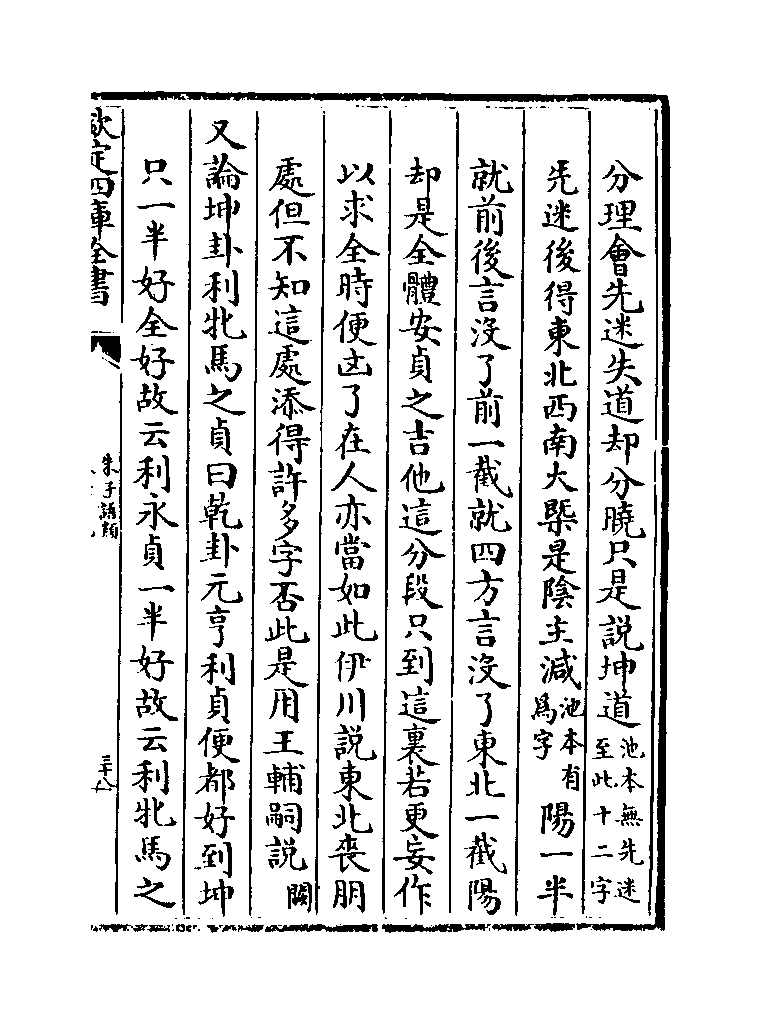 分理會先迷失道却分曉只是說坤道池本無先迷至此十二字
先迷後得東北西南大槩是陰主減池本有爲字陽一半
就前後言沒了前一截就四方言沒了東北一截陽
却是全體安貞之吉他這分段只到這裏若更妄作
以求全時便凶了在人亦當如此伊川說東北喪朋
處但不知這處添得許多字否此是用王輔嗣說閎
又論坤卦利牝馬之貞曰乾卦元亨利貞便都好到坤
只一半好全好故云利永貞一半好故云利牝馬之
欽定四庫全書
朱子語類
三十八